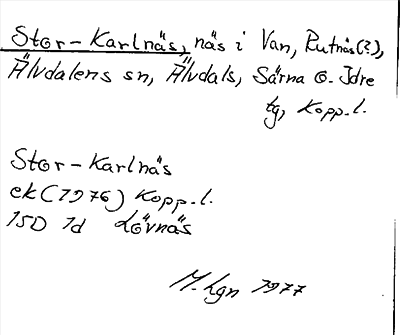 Stor-Karlnäs, näs i Van, Rutnäs(?),
Älvdalens sn, Älvdals, Särna o. Idre
tg, Kopp.l.
Stor-Karlnäs
ek(1976) Kopp.l.
15D 1d Lövnäs
M. Lgn 1977